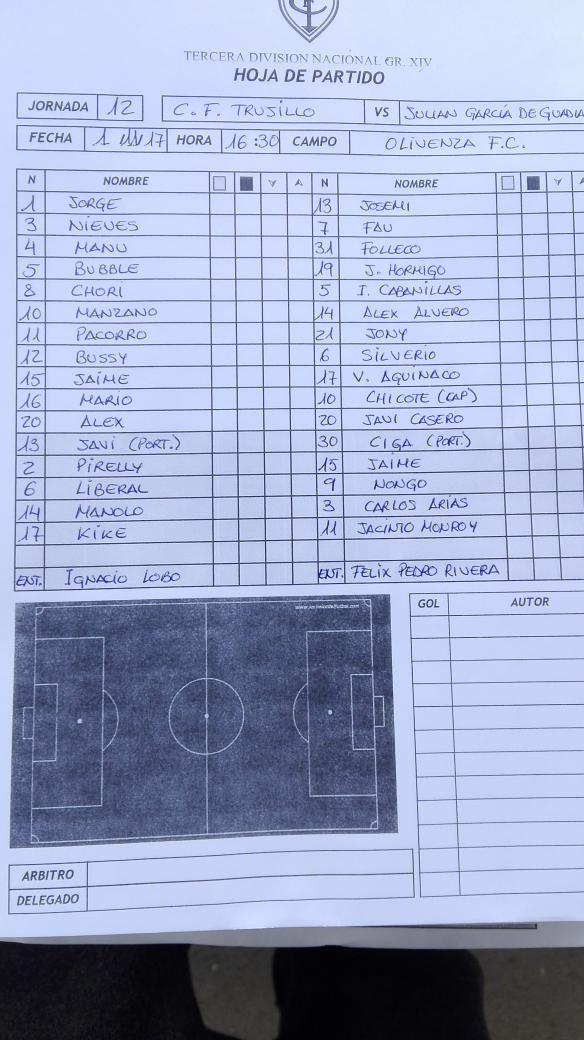 TERCERA DIVISION NACIÓNAL GR. XIV
HOJA DE PARTIDO
JORNADA 12 C.F. TRUJILLO VS JULIAN GARCÍA DE GUADIA
FECHA 1 17 HORA 16:30 CAMPO OLIVENZA F.C.
N NOMBRE Y A N NOMBRE Y A
1 JORGE 13 JOSEMI
3 NIEVES 7 FAU
4 MANU 31 FOLLECO
5 BUBBLE 19 J. HORMIGO
8 CHORI 5 I. CABANILLAS
10 MANZANO 14 ALEX ALVERO
11 PACORRO 21 JONY
12 BUSSY 6 SILVERIO
15 JAIME 17 V. AQUINACO
16 MARIO 10 CHICOTE (CAP)
20 ALEX 20 JAVI CASERO
13 JAVI (PORT.) 30 CIGA (PORT.)
2 PIRELLY 15 JAIME
6 LIBERAL 9 NONGO
14 MANOLO 3 CARLOS ARIAS
17 KIKE 11 JACINTO MONROY
ENT. IGNACIO LOBO ENT. FELIX PEDRO RIVERA
GOL AUTOR
ARBITRO
DELEGADO